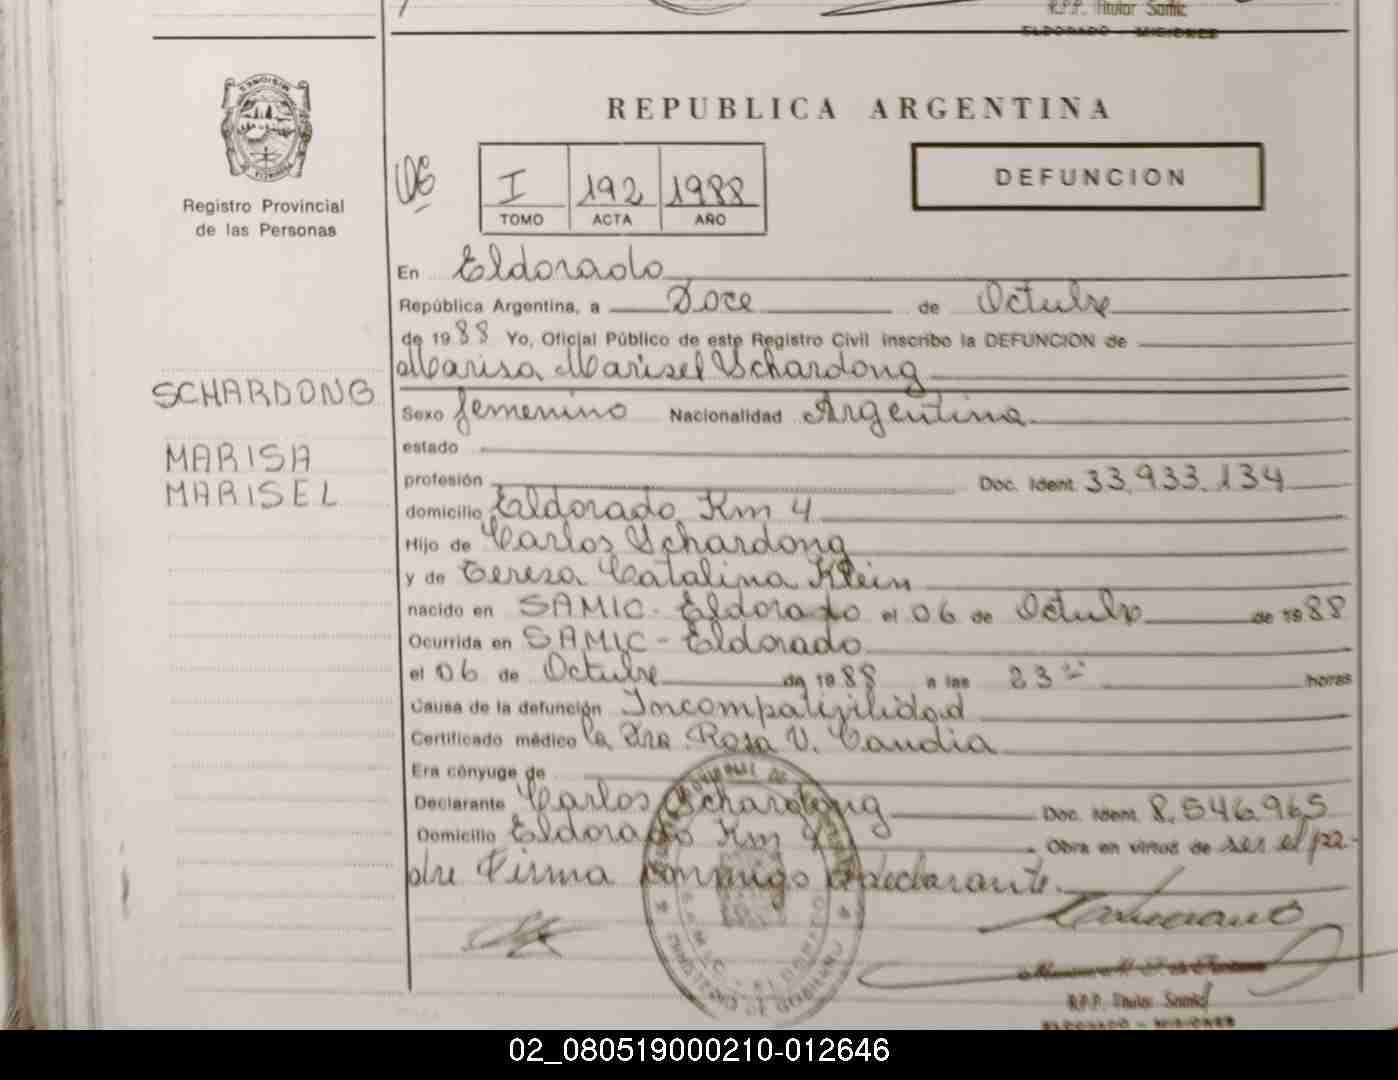 R.P.P. Titular Samic
ELDORADO - MISIONES
REPUBLICA ARGENTINA
DEFUNCION
Registro Provincial
de las Personas
06
I 192 1988
TOMO ACTA AÑO
En Eldorado
República Argentina, a Doce de Octubre
de 1988 Yo, Oficial Público de este Registro Civil inscribo la DEFUNCION de
Marisa Marisel Schardong
SCHARDONG
MARISA
MARISEL
Sexo femenino Nacionalidad Argentina
estado
profesión Doc. Ident. 33.933.134
domicilio Eldorado Km 4
Hijo de Carlos Schardong
y de Teresa Catalina Klein
nacido en SAMIC - Eldorado el 06 de Octubre de 1988
Ocurrida en SAMIC - Eldorado
el 06 de Octubre de 1988 a las 23 horas
Causa de la defunción Incompativilidad
Certificado médico la Dra Rosa V. Candia
Era cónyuge de
Declarante Carlos Schardong Doc. Ident. 8.546.965
Domicilio Eldorado Km 4 Obra en virtud de ser el pa-
dre Firma conmigo el declarante.
SAMIC - ELDORADO
MINISTERIO DE GOBIERNO
R.P.P. Titular Samic
ELDORADO - MISIONES
02_080519000210-012646